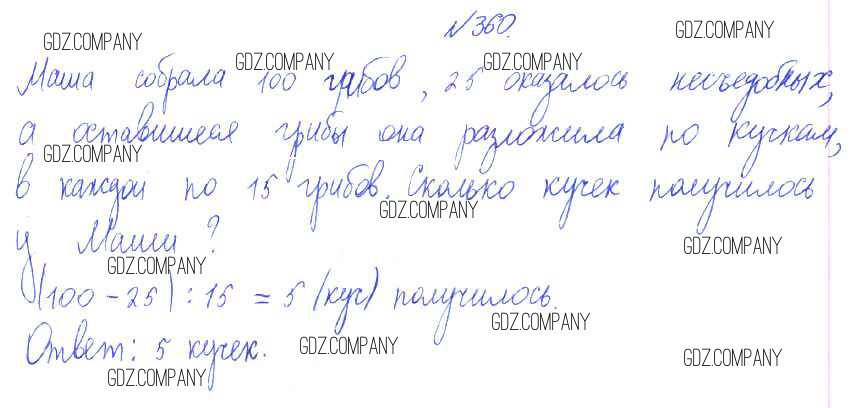 №360.
Маша собрала 100 грибов, 25 оказалось несъедобных,
а оставшиеся грибы она разложила по кучкам,
в каждой по 15 грибов. Сколько кучек получилось
у Маши?
(100 - 25) : 15 = 5 (куч) получилось.
Ответ: 5 кучек.
GDZ.COMPANY
GDZ.COMPANY
GDZ.COMPANY
GDZ.COMPANY
GDZ.COMPANY
GDZ.COMPANY
GDZ.COMPANY
GDZ.COMPANY
GDZ.COMPANY
GDZ.COMPANY
GDZ.COMPANY
GDZ.COMPANY